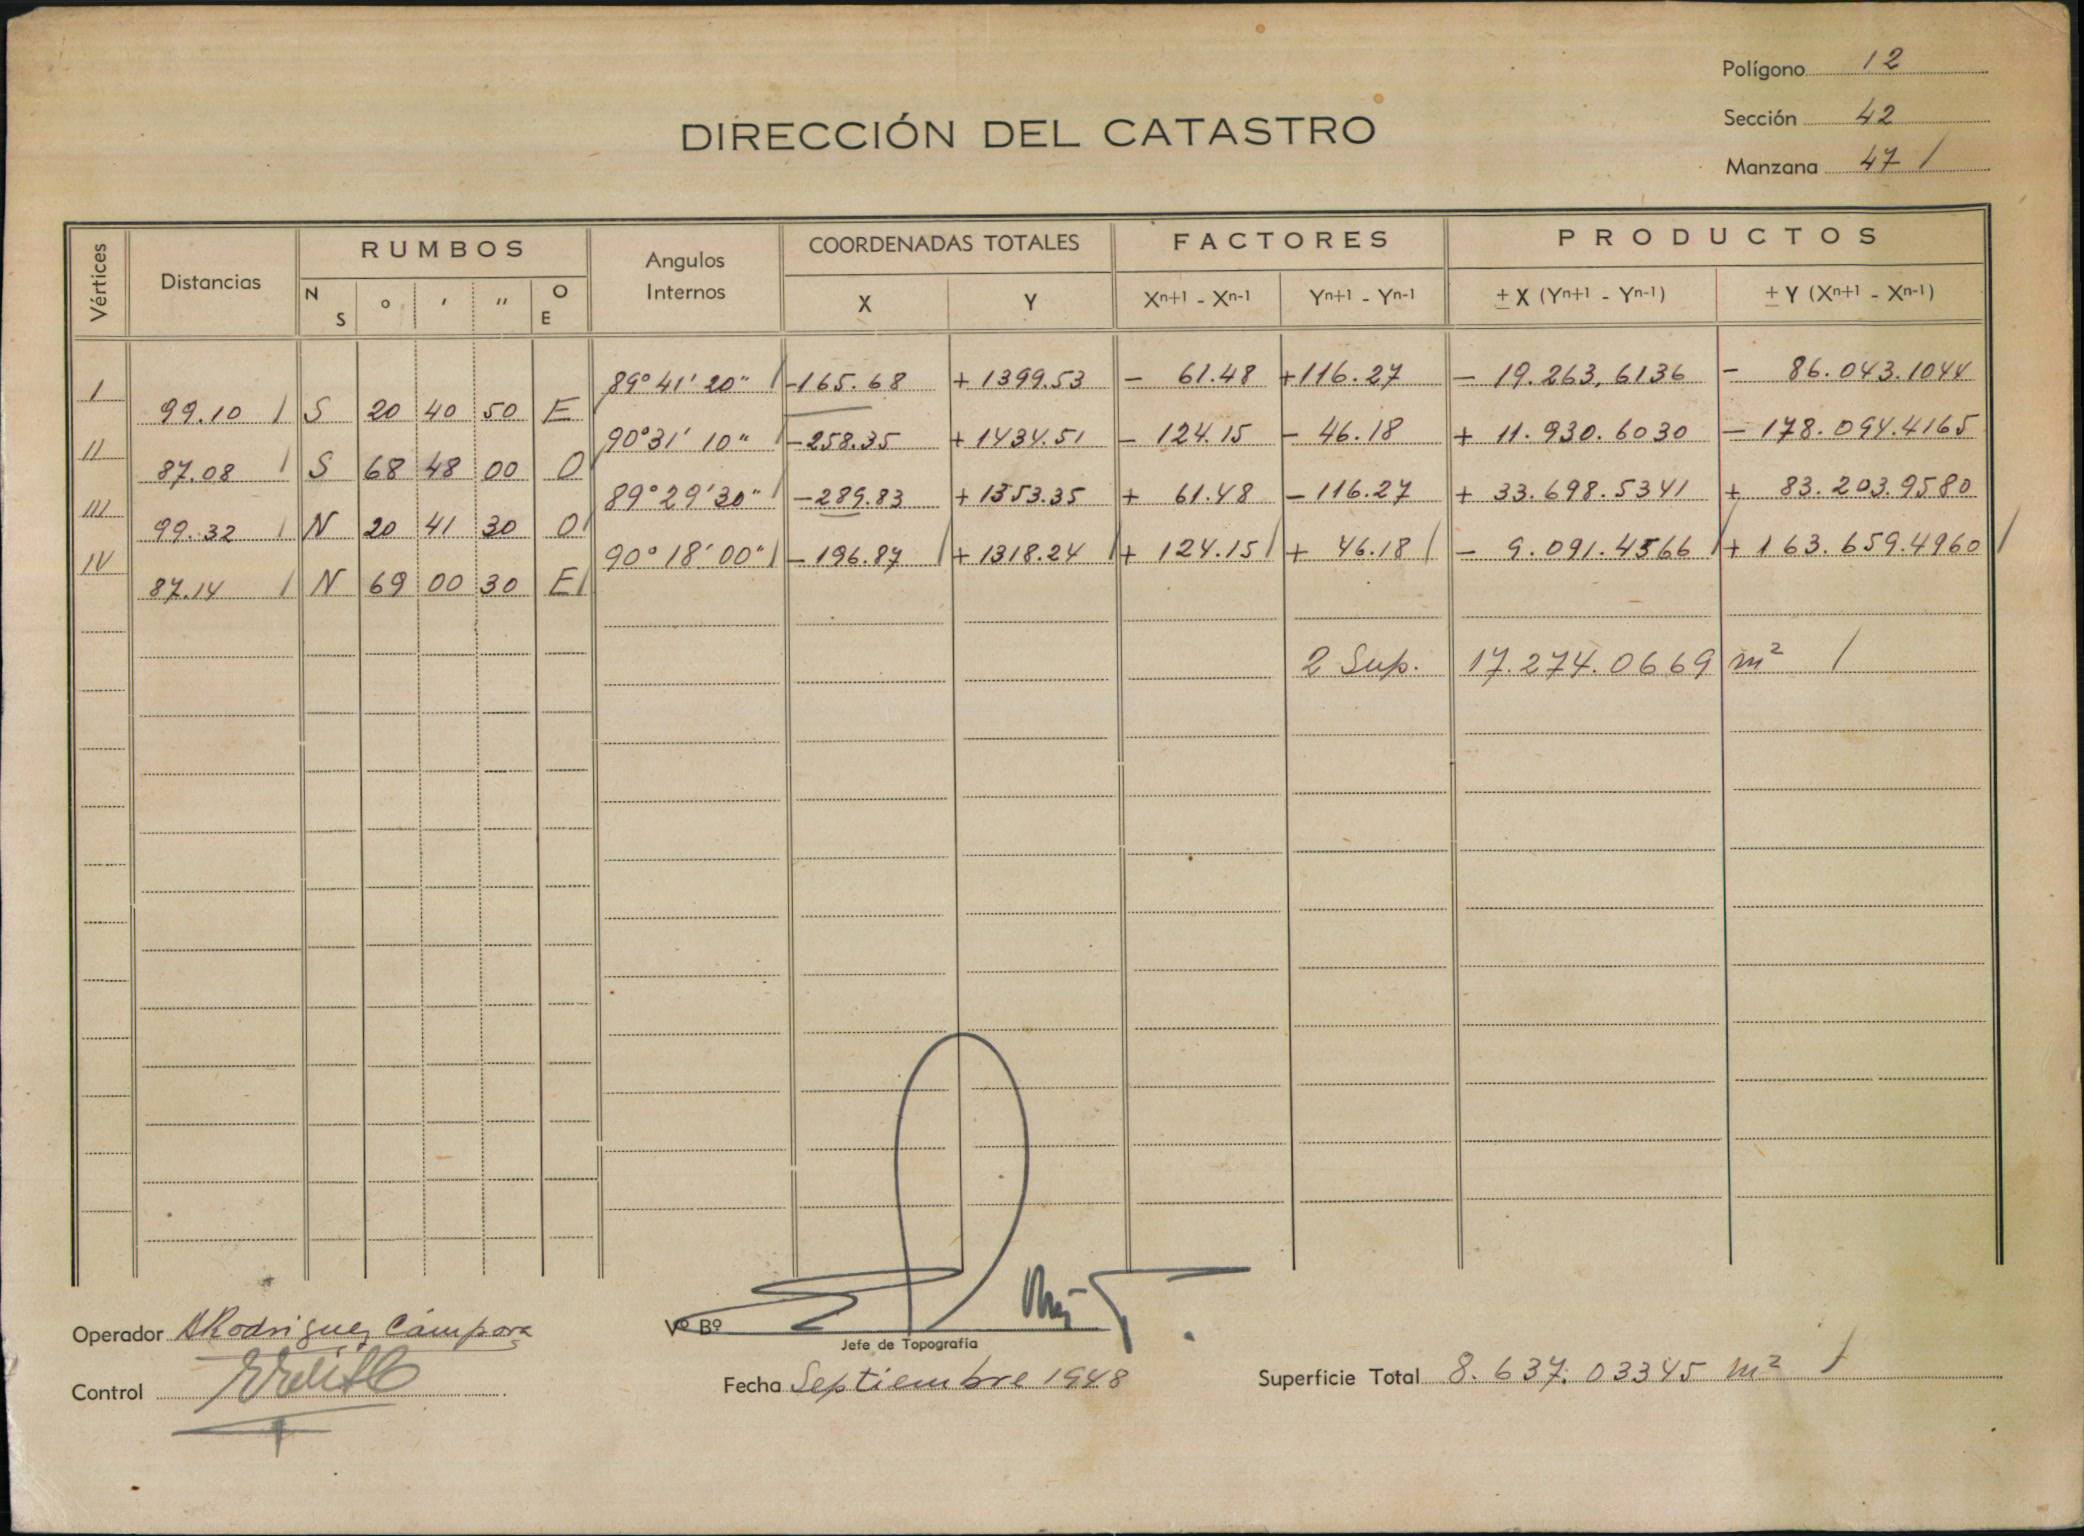 Polígono 12
Sección 42
Manzana 47 /
DIRECCIÓN DEL CATASTRO
Vértices Distancias RUMBOS Angulos Internos COORDENADAS TOTALES FACTORES PRODUCTOS
N S ° ' " O E X Y Xn+1 - Xn-1 Yn+1 - Yn-1 ± X (Yn+1 - Yn-1) ± Y (Xn+1 - Xn-1)
I 89° 41' 20" / -165.68 + 1399.53 - 61.48 +116.27 - 19.263,6136 - 86.043.1044
99.10 / S 20 40 50 E
II 90° 31' 10" / -258.35 + 1434.51 - 124.15 - 46.18 + 11.930.6030 - 178.094.4165
87.08 / S 68 48 00 O
III 89° 29' 30" / -289.83 + 1353.35 + 61.48 - 116.27 + 33.698.5341 + 83.203.9580
99.32 / N 20 41 30 O /
IV 90° 18' 00" / - 196.87 / + 1318.24 / + 124.15 / + 46.18 / - 9.091.4566 / + 163.659.4960 /
87.14 / N 69 00 30 E /
2 Sup. 17.274.0669 m² /
Operador A Rodriguez Cámpora
Vº Bº
Jefe de Topografía
Control
Fecha Septiembre 1948
Superficie Total 8.637.03345 m² /